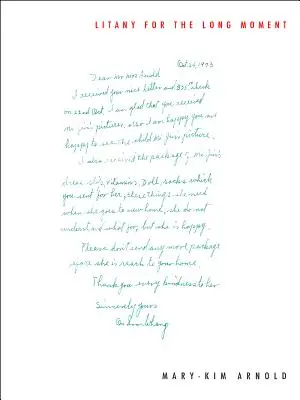 LITANY FOR THE LONG MOMENT
Oct 26, 1973
Dear Mr Mrs Arnold
I received your nice letter and $35⁰⁰ check
on 22nd Oct. I am glad that you received
Mi Jin's pictures, also I am happy you are
happy to see the child Mi Jin's picture.
I also received the package of Mi Jin's
dress, slip, vitamins, Doll, socks which
you sent for her, these things she need
when she goes to new home, she do not
understand what for, but she is happy.
Please don't send any more package
before she is reach to your home.
Thank you every kindness to her
Sincerely yours
MARY-KIM ARNOLD